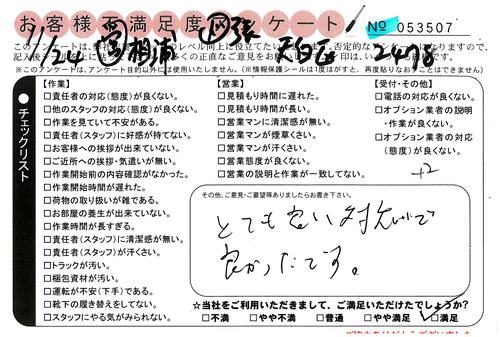 お客様不満足度アンケート! № 053507
11/24 相浦 出張 天白区 2478
このアンケートは、弊社
※このアンケートは、アンケート目的以外には使用いたしません。(※情報保護シールは1度はがすと、再度貼りなおすことはできません)
チェックリスト
【作業】
□責任者の対応(態度)が良くない。
□他のスタッフの対応(態度)が良くない。
□作業を見ていて不安がある。
□責任者(スタッフ)に好感が持てない。
□お客様への挨拶が出来ていない。
□ご近所への挨拶・気遣いが無い。
□作業開始前の内容確認がなかった。
□作業開始時間が遅れた。
□荷物の取り扱いが雑である。
□お部屋の養生が出来ていない。
□作業時間が長すぎる。
□責任者(スタッフ)に清潔感が無い。
□責任者(スタッフ)が汗くさい。
□トラックが汚い。
□梱包資材が汚い。
□運転が不安(下手)である。
□靴下の履き替えをしてない。
□スタッフにやる気がみられない。
【営業】
□見積もり時間に遅れた。
□見積もり時間が長い。
□営業マンに清潔感が無い。
□営業マンが煙草くさい。
□営業マンが汗くさい。
□営業態度が良くない。
□営業の説明と作業が一致してない。
【受付・その他】
□電話の対応が良くない。
□オプション業者の説明
・作業が良くない。
□オプション業者の対応
(態度)が良くない。
+2
その他、ご意見・ご要望等ありましたらお書き下さい。
とても良い対応で
良かったです。
☆当社をご利用いただきまして、ご満足いただけたでしょうか?
□不満 □やや不満 □普通 □やや満足 □満足